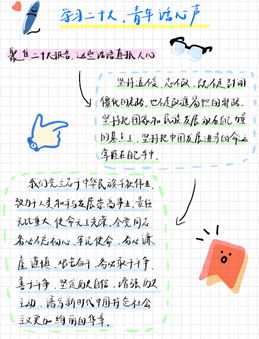 学习二十大，青年话心声
聚焦二十大报告，这些话语直抵人心
坚持道德、志不改，既不走封闭
僵化的老路，也不走改旗易帜的邪路，
坚持把国家和民族发展放在自己力量
的基点上，坚持把中国发展进步的命运
牢牢掌握在自己手中。
我们党立志于中华民族千秋伟业，
致力于人类和平与发展崇高事业，责任
无比重大，使命无上光荣。全党同志
务必不忘初心、牢记使命，务必谦
虚谨慎、艰苦奋斗，务必敢于斗争、
善于斗争，坚定历史自信，增强历史
主动，谱写新时代中国特色社会
主义更加绚丽的华章。